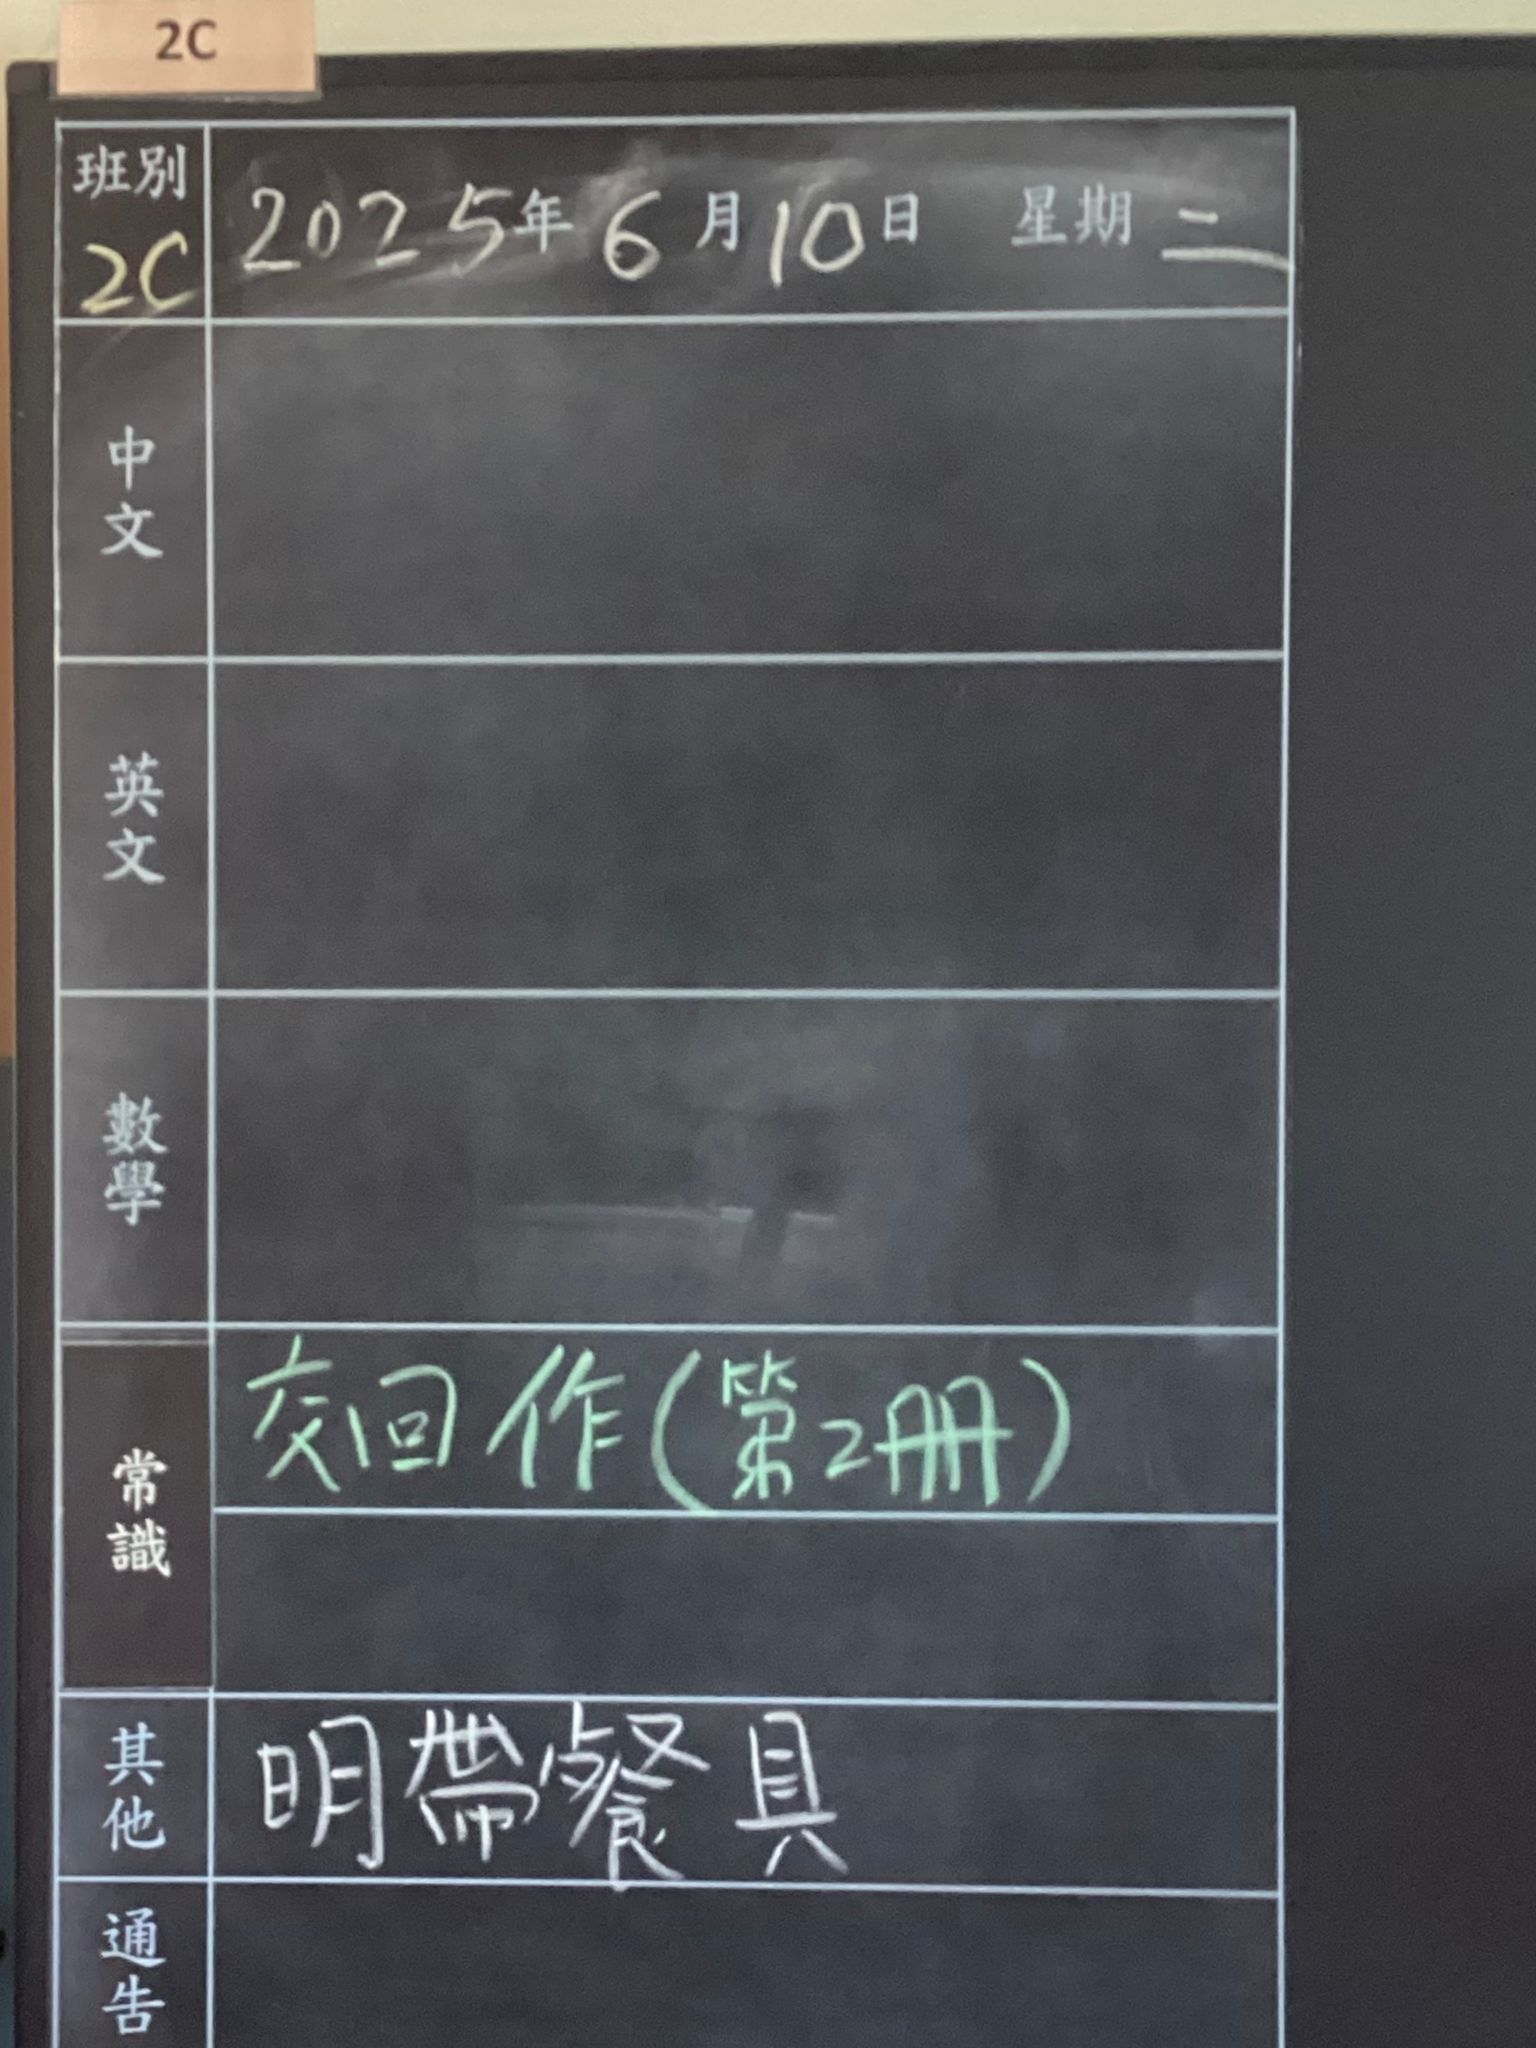 2C
班別
2C
2025年6月10日 星期二
中文
英文
數學
常識
交回作(第2冊)
其他
明帶餐具
通告